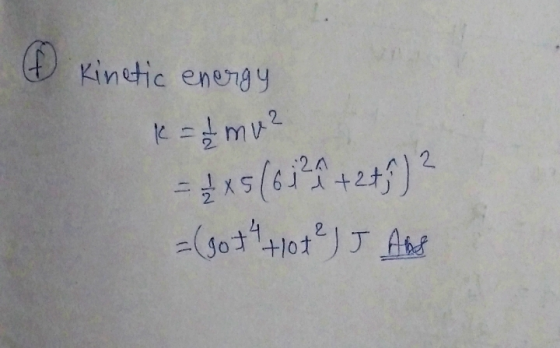 (f) Kinetic energy
K = 1/2 mv²
= 1/2 × 5 (6t² î + 2t ĵ)²
= (90t⁴ + 10t²) J Ans